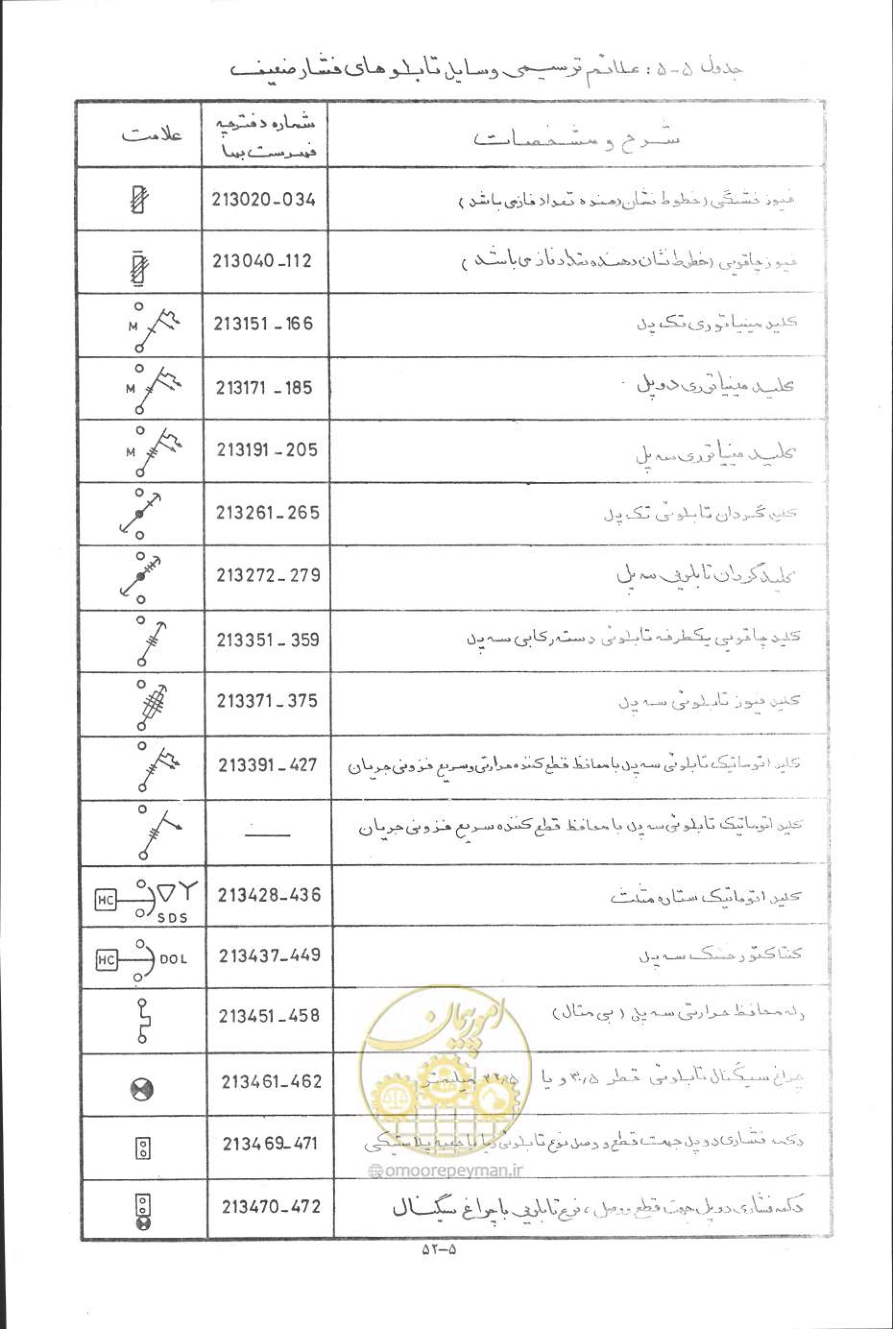 جدول ۵-۵: علائم ترسیمی وسایل تابلوهای فشار ضعیف
شرح و مشخصات
شماره دفترچه
فهرست بها
علامت
فیوز فشنگی (خطوط نشان دهنده تعداد فاز می باشد)
213020-034
فیوز چاقویی (خطوط نشان دهنده تعداد فاز می باشد)
213040-112
کلید مینیاتوری تک پل
213151-166
M
کلید مینیاتوری دو پل
213171-185
M
کلید مینیاتوری سه پل
213191-205
M
کلید گردان تابلوئی تک پل
213261-265
کلید گردان تابلویی سه پل
213272-279
کلید چاقویی یکطرفه تابلوئی دسته رکابی سه پل
213351-359
کلید فیوز تابلوئی سه پل
213371-375
کلید اتوماتیک تابلوئی سه پل با محافظ قطع کننده حرارتی و سریع فزونی جریان
213391-427
کلید اتوماتیک تابلوئی سه پل با محافظ قطع کننده سریع فزونی جریان
کلید اتوماتیک ستاره مثلث
213428-436
HC SDS
کنتاکتور خشک سه پل
213437-449
HC DOL
رله محافظ حرارتی سه پل (بی متال)
213451-458
چراغ سیگنال تابلوئی قطر ۳۰/۵ و یا ۲۲/۵ میلیمتر
213461-462
دکمه فشاری دو پل جهت قطع و وصل نوع تابلوئی و یا با جعبه پلاستیکی
213469-471
دکمه فشاری دو پل جهت قطع و وصل، نوع تابلویی با چراغ سیگنال
213470-472
۵۲-۵
امور پیمان
@omoorepeyman.ir